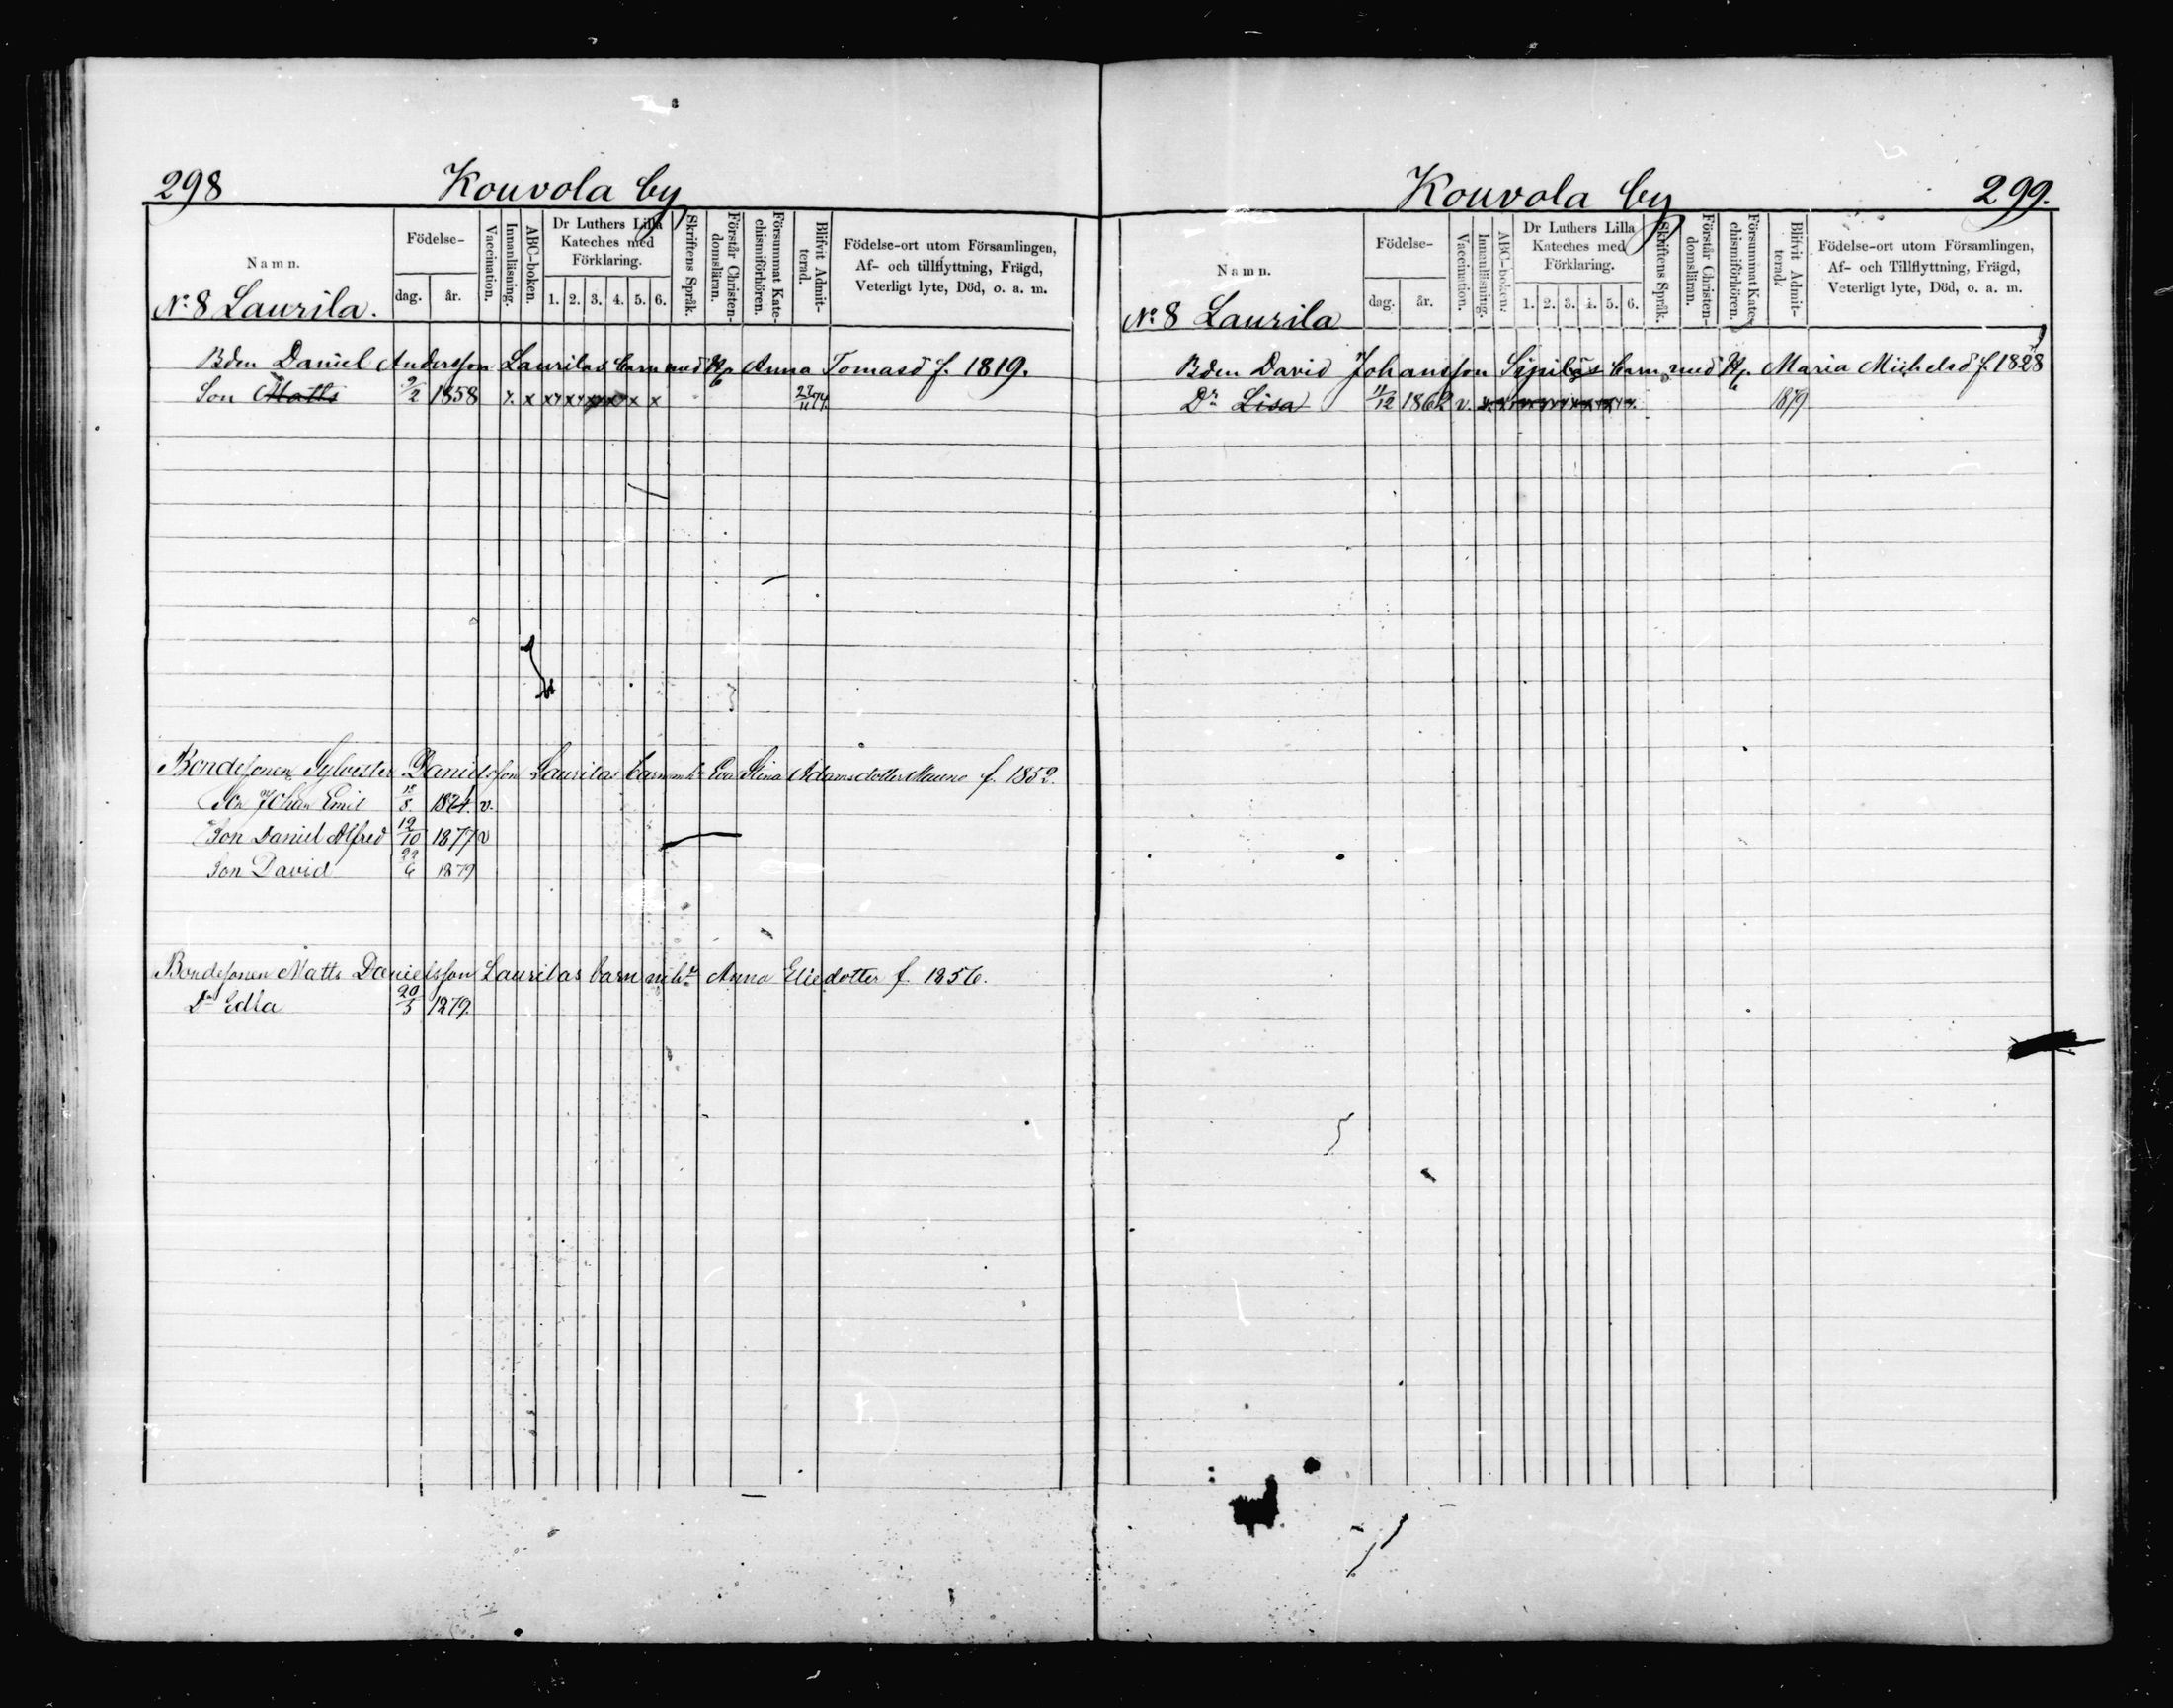 298 Kouvola by
Namn. Födelse- Vaccination. Innanläsning. ABC-boken. Dr Luthers Lilla Kateches med Förklaring. Skriftens Språk. Förstår Christendomsläran. Försummat Katechismiförhören. Blifvit Admitterad. Födelse-ort utom Församlingen, Af- och tillflyttning, Frägd, Veterligt lyte, Död, o. a. m.
dag. år. 1. 2. 3. 4. 5. 6.
No 8 Laurila.
Bden Daniel Andersson Laurilas barn med H. Anna Tomasd f. 1819.
Son Matts 9/2 1858
Bondesonen Sylvester Danielsson Laurilas barn m h. Eva Stina Adamsdotter f. 1852.
Son Johan Emil 1874. v.
Son Daniel Alfred 12/10 1877 v
Son David 22/6 1879
Bondesonen Matts Danielsson Laurilas barn m h. Anna Eliedotter f. 1856.
Dr Edla 20/5 1879.
Kouvola by 299.
Namn. Födelse- Vaccination. Innanläsning. ABC-boken. Dr Luthers Lilla Kateches med Förklaring. Skriftens Språk. Förstår Christendomsläran. Försummat Katechismiförhören. Blifvit Admitterad. Födelse-ort utom Församlingen, Af- och Tillflyttning, Frägd, Veterligt lyte, Död, o. a. m.
dag. år. 1. 2. 3. 4. 5. 6.
No 8 Laurila
Bden David Johansson Sipiläs barn med H. Maria Michelsd f. 1828
Dr Lisa 11/12 1862 v. 1879